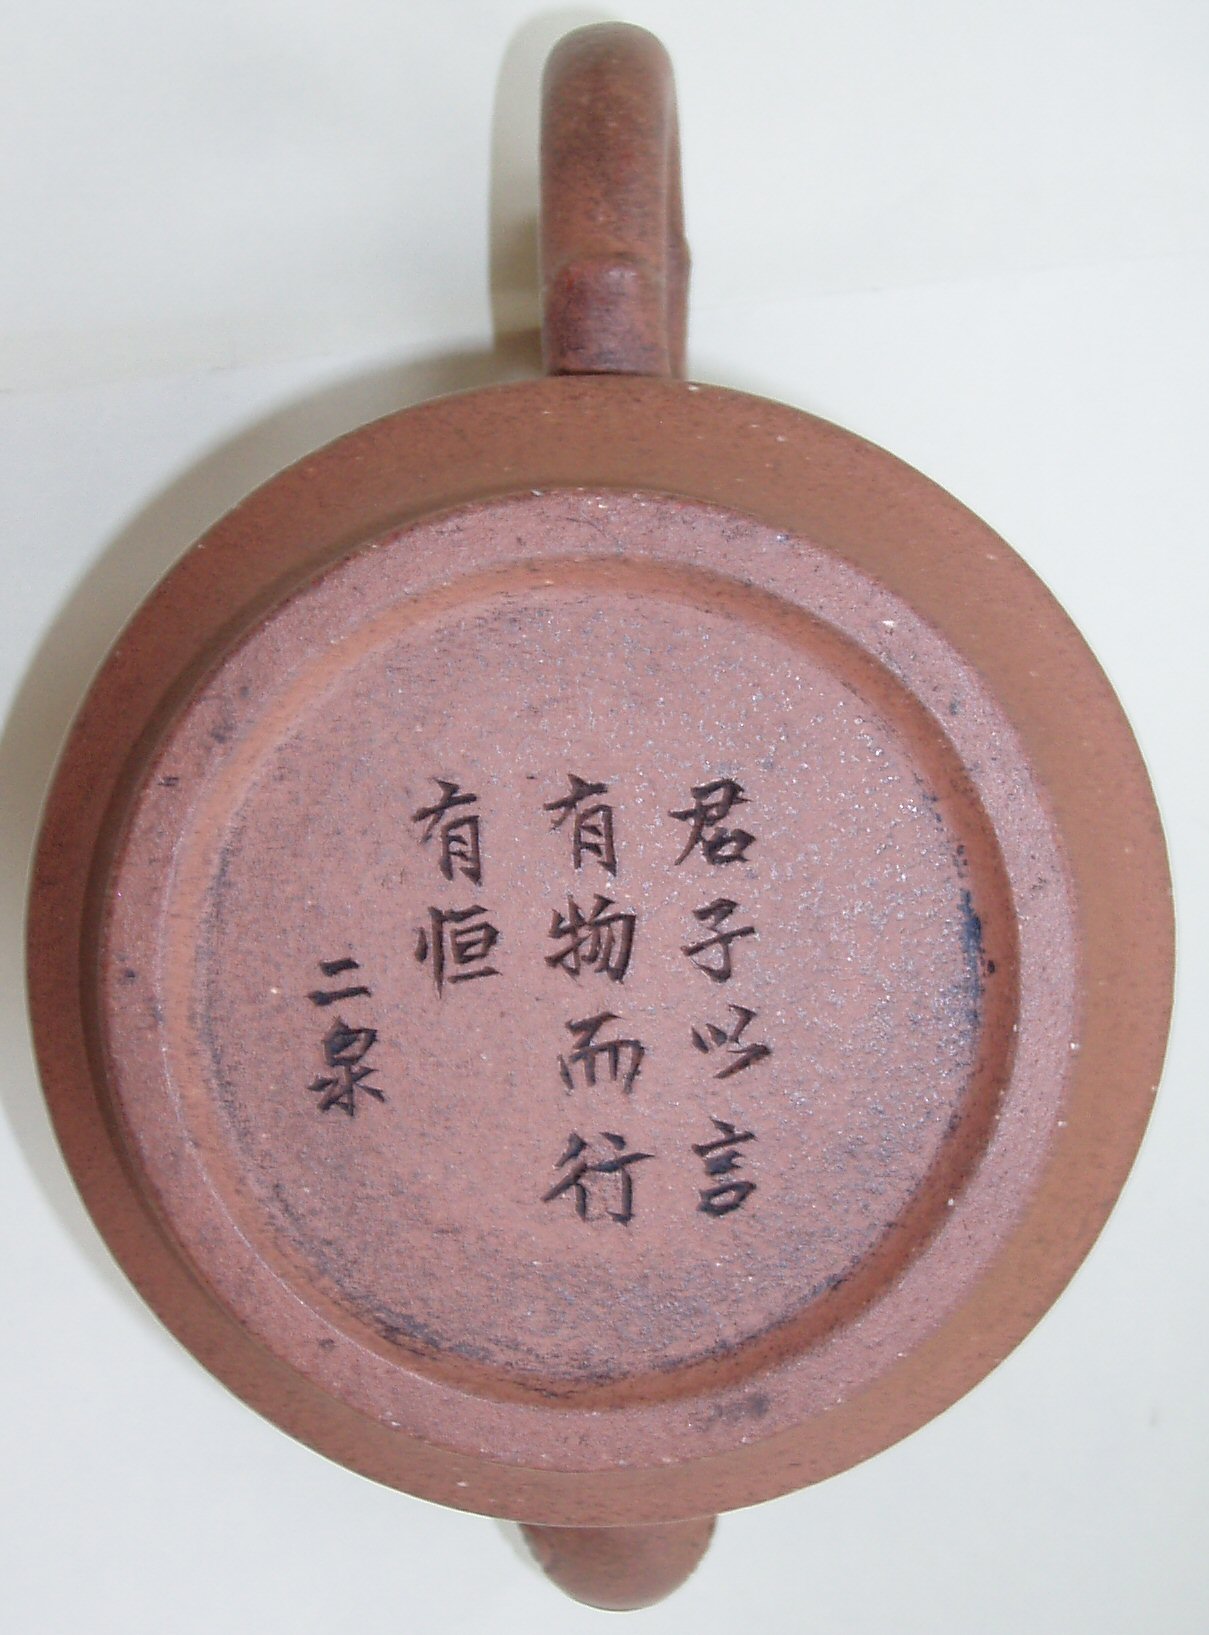 君子以言
有物而行
有恒
二泉